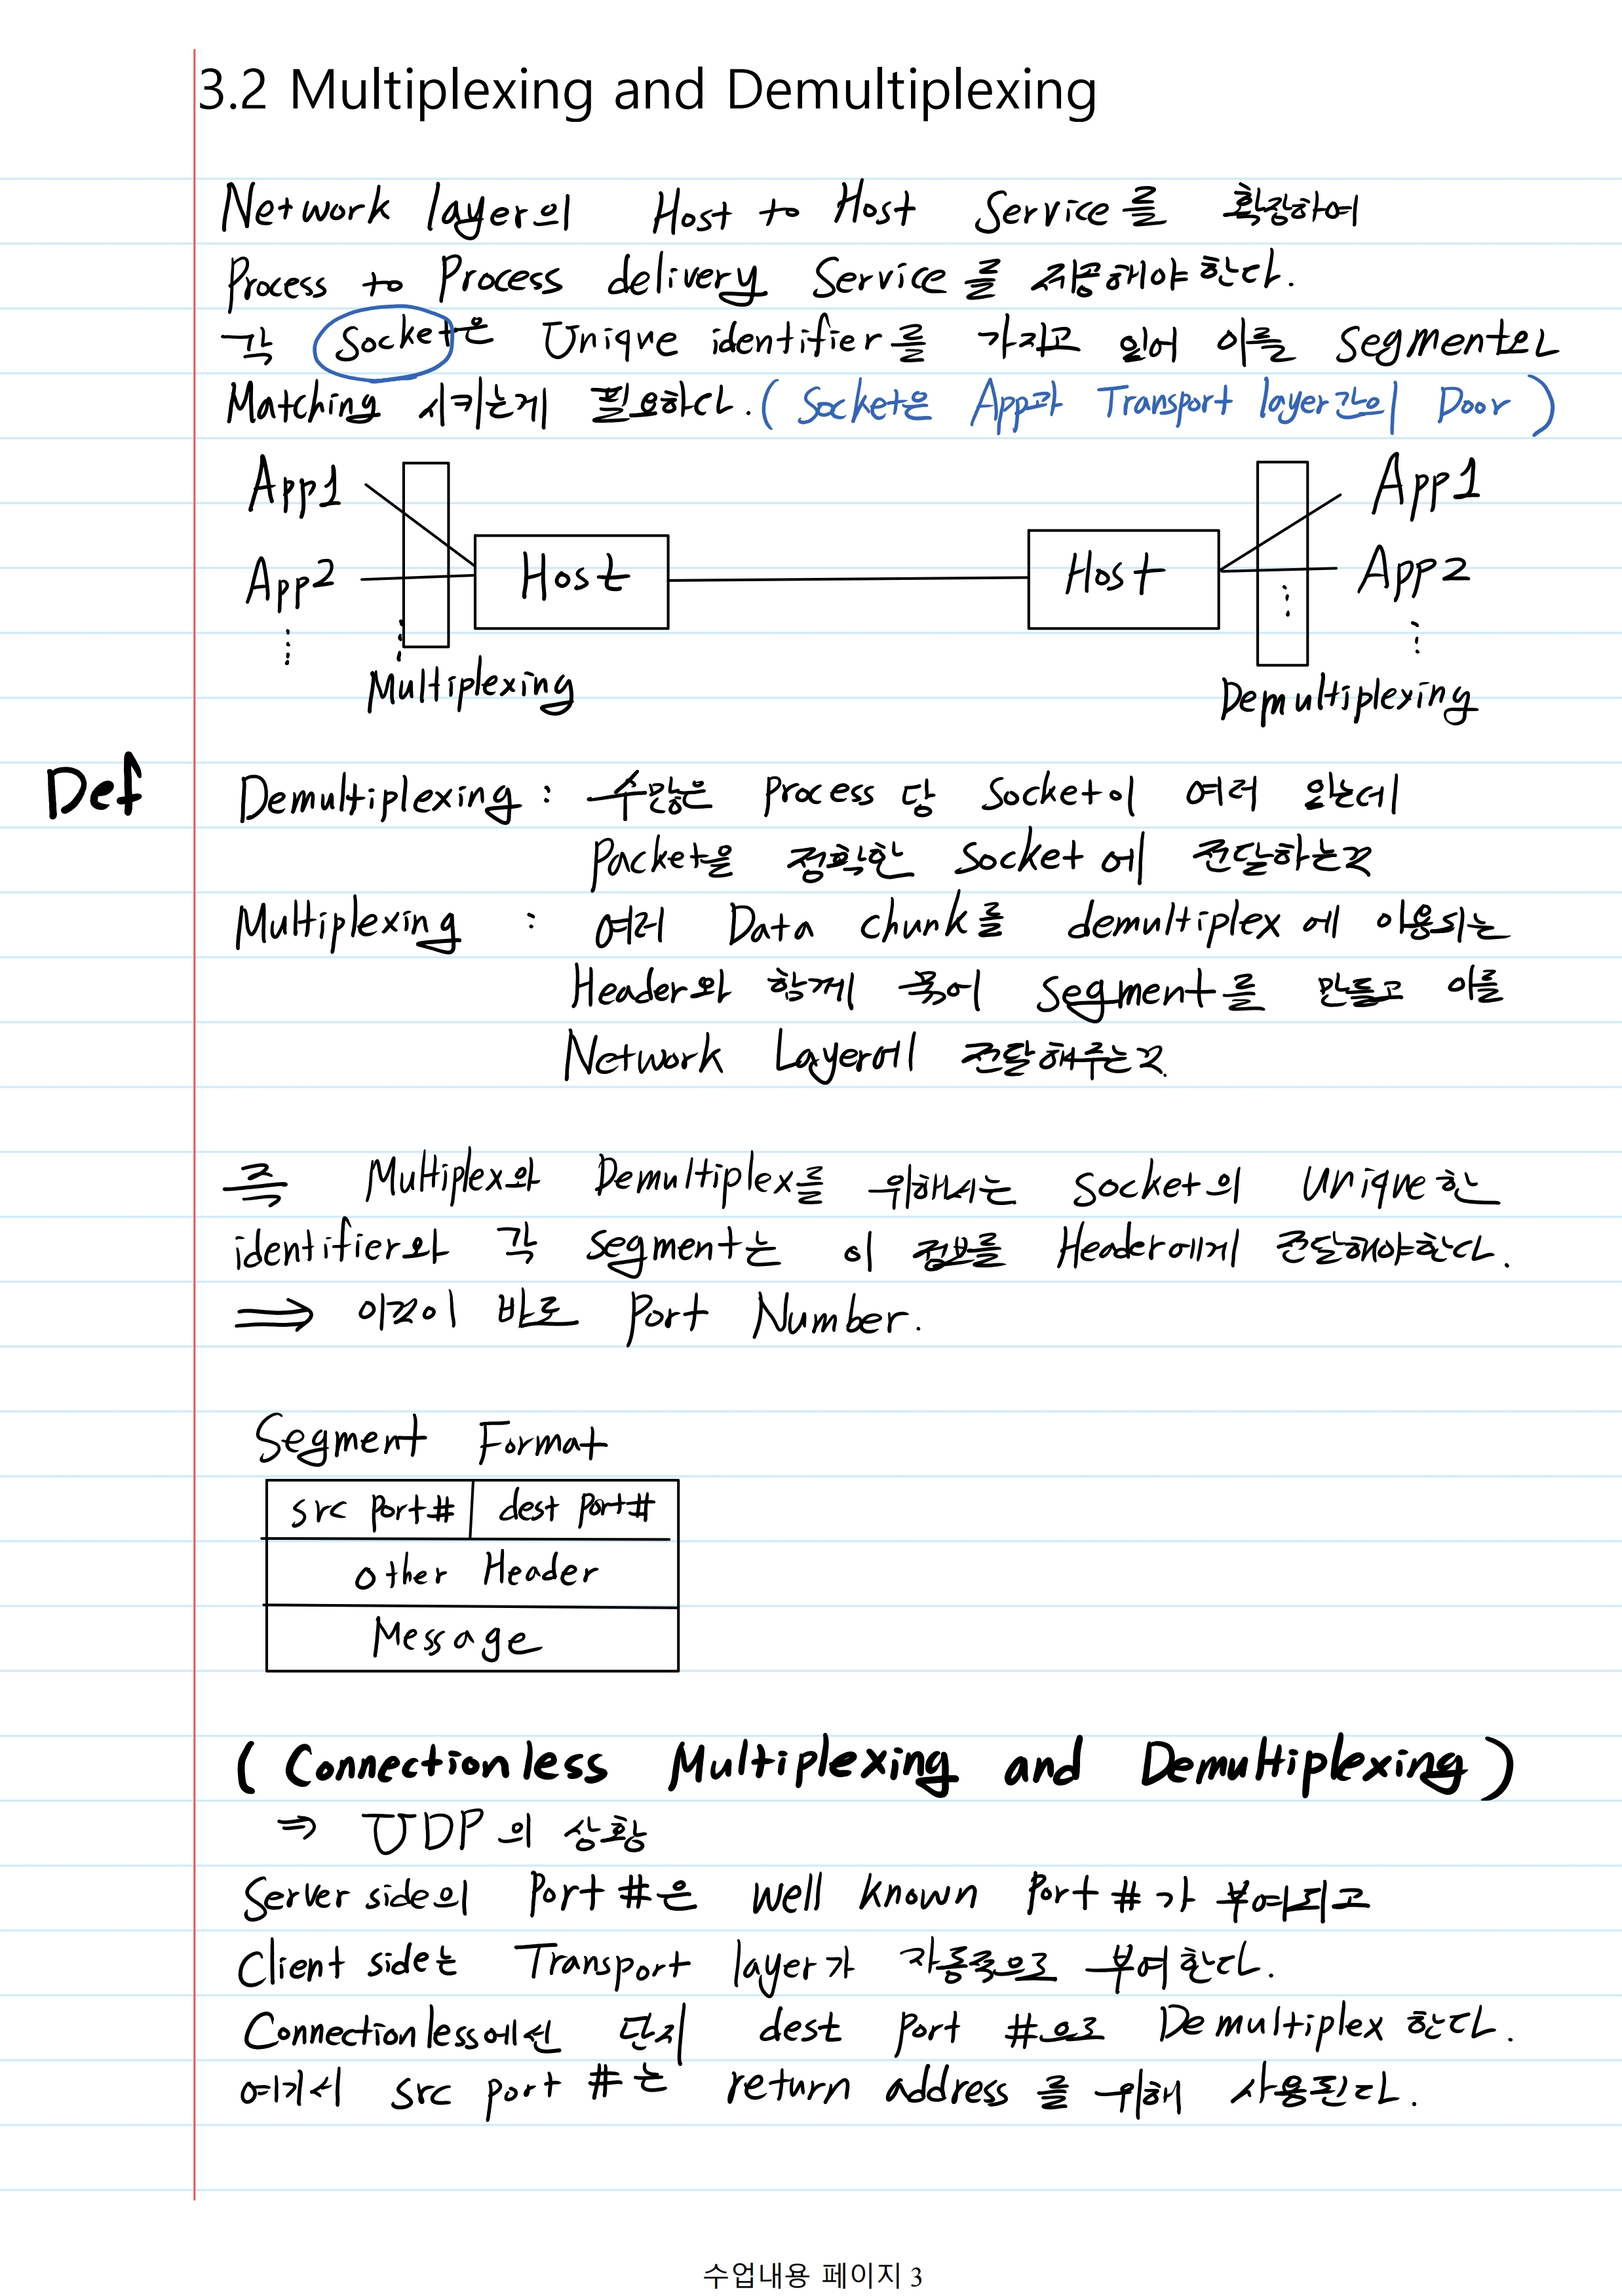 3.2 Multiplexing and Demultiplexing
Network layer의 Host to Host Service를 확장하여
Process to Process delivery Service를 제공해야 한다.
각 Socket은 Unique identifier를 가지고 있어 이를 Segment와
Matching 시키는게 필요하다. (Socket은 App과 Transport layer간의 Door)
App1 App1
App2 Host Host App2
Multiplexing Demultiplexing
Def Demultiplexing : 수많은 Process 당 Socket이 여러 있는데
Packet을 정확한 Socket에 전달하는것
Multiplexing : 여러 Data chunk를 demultiplex에 이용되는
Header와 함께 묶어 Segment를 만들고 이를
Network Layer에 전달해주는것.
즉 Multiplex와 Demultiplex를 위해서는 Socket의 Unique한
identifier와 각 Segment는 이 정보를 Header에게 전달해야한다.
⇒ 이것이 바로 Port Number.
Segment Format
src Port# dest Port#
other Header
Message
(Connectionless Multiplexing and Demultiplexing)
⇒ UDP의 상황
Server side의 Port #은 well known Port #가 부여되고
Client side는 Transport layer가 자동적으로 부여한다.
Connectionless에선 단지 dest port #으로 Demultiplex 한다.
여기서 src port #는 return address를 위해 사용된다.
수업내용 페이지 3